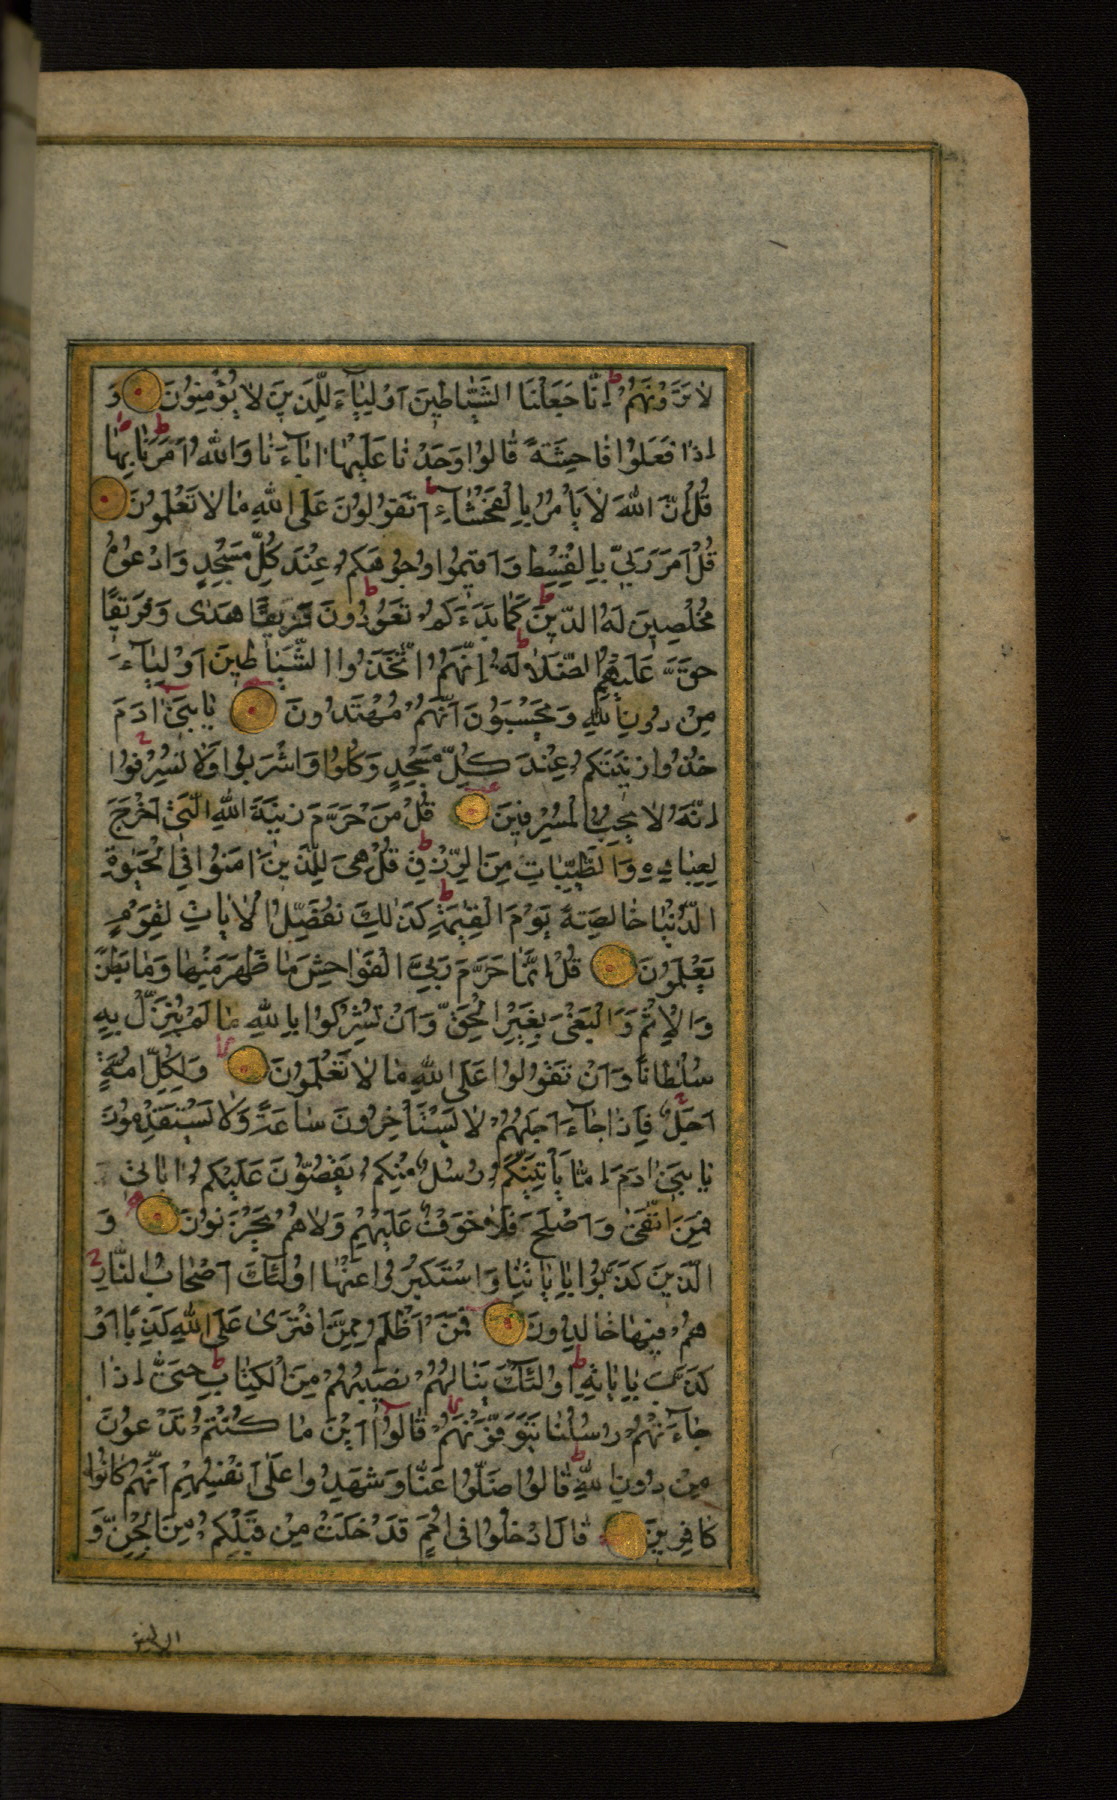 لا تَرَوْنَهُمْ اِنَّا جَعَلْنَا الشَّيَاطِينَ اَوْلِيَآءَ لِلَّذِينَ لا يُؤْمِنُونَ وَ
اِذا فَعَلُوا فاحِشَةً قالُوا وَجَدْنا عَلَيْها اٰبآءَنا وَاللهُ اَمَرَنا بِها
قُلْ اِنَّ اللهَ لا يَأْمُرُ بِالْفَحْشآءِ اَتَقُولُونَ عَلَى اللهِ ما لا تَعْلَمُونَ
قُلْ اَمَرَ رَبِّي بِالْقِسْطِ وَاَقيمُوا وُجُوهَكُمْ عِنْدَ كُلِّ مَسْجِدٍ وَادْعُوهُ
مُخْلِصِينَ لَهُ الدّينَ كَما بَدَءَكُمْ تَعُودُونَ فَرِيقًا هَدٰى وَفَرِيقًا
حَقَّ عَلَيْهِمُ الضَّلالَةُ اِنَّهُمُ اتَّخَذُوا الشَّيَاطِينَ اَوْلِيآءَ
مِنْ دُونِ اللهِ وَيَحْسَبُونَ اَنَّهُمْ مُهْتَدُونَ يا بَنِي اٰدَمَ
خُذُوا زِينَتَكُمْ عِنْدَ كُلِّ مَسْجِدٍ وَكُلُوا وَاشْرَبُوا وَلا تُسْرِفُوا
اِنَّهُ لا يُحِبُّ الْمُسْرِفينَ قُلْ مَنْ حَرَّمَ زينَةَ اللهِ الَّتي اَخْرَجَ
لِعِبادِهِ وَالطَّيِّباتِ مِنَ الرِّزْقِ قُلْ هِيَ لِلَّذينَ اٰمَنُوا فِي الْحَيٰوةِ
الدُّنْيا خالِصَةً يَوْمَ الْقِيٰمَةِ كَذٰلِكَ نُفَصِّلُ الْاٰياتِ لِقَوْمٍ
يَعْلَمُونَ قُلْ اِنَّما حَرَّمَ رَبِّيَ الْفَواحِشَ ما ظَهَرَ مِنْها وَما بَطَنَ
وَالْاِثْمَ وَالْبَغْيَ بِغَيْرِ الْحَقِّ وَاَنْ تُشْرِكُوا بِاللهِ ما لَمْ يُنَزِّلْ بِهِ
سُلْطانًا وَاَنْ تَقُولُوا عَلَى اللهِ ما لا تَعْلَمُونَ وَلِكُلِّ اُمَّةٍ
اَجَلٌ فَاِذا جآءَ اَجَلُهُمْ لا يَسْتَأْخِرُونَ ساعَةً وَلا يَسْتَقْدِمُونَ
يا بَني اٰدَمَ اِمّا يَأْتِيَنَّكُمْ رُسُلٌ مِنْكُمْ يَقُصُّونَ عَلَيْكُمْ اٰياتي
فَمَنِ اتَّقىٰ وَاَصْلَحَ فَلا خَوْفٌ عَلَيْهِمْ وَلا هُمْ يَحْزَنُونَ وَ
الَّذينَ كَذَّبُوا بِاٰياتِنا وَاسْتَكْبَرُوا عَنْها اُولٰئِكَ اَصْحابُ النّارِ
هُمْ فيها خالِدُونَ فَمَنْ اَظْلَمُ مِمَّنِ افْتَرٰى عَلَى اللهِ كَذِبًا اَوْ
كَذَّبَ بِاٰياتِهِ اُولٰئِكَ يَنالُهُمْ نَصيبُهُمْ مِنَ الْكِتابِ حَتّى اِذا
جآءَتْهُمْ رُسُلُنا يَتَوَفَّوْنَهُمْ قالُوا اَيْنَ ما كُنْتُمْ تَدْعُونَ
مِنْ دُونِ اللهِ قالُوا ضَلُّوا عَنّا وَشَهِدُوا عَلٰى اَنْفُسِهِمْ اَنَّهُمْ كانُوا
كافِرينَ قالَ ادْخُلُوا في اُمَمٍ قَدْ خَلَتْ مِنْ قَبْلِكُمْ مِنَ الْجِنِّ وَ
الانس